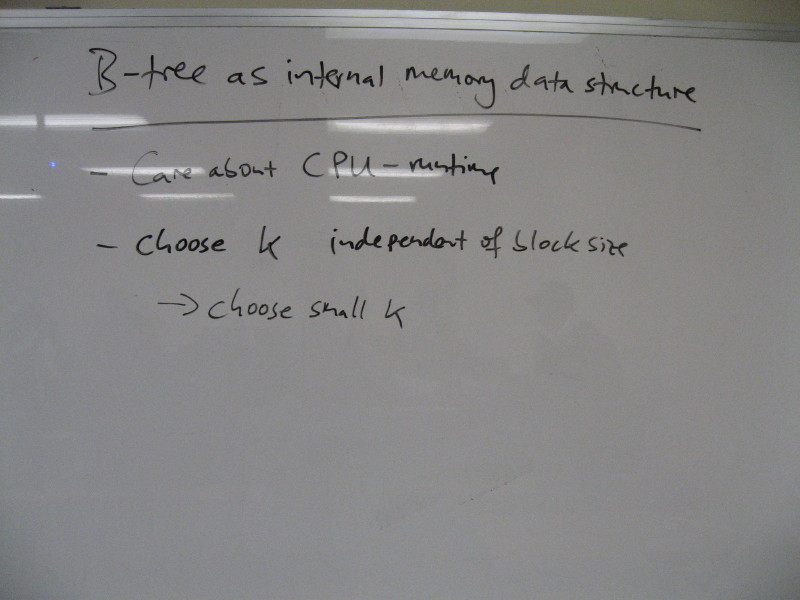 B-tree as internal memory data structure
- Care about CPU-runtime
- choose k independent of block size
→ choose small k